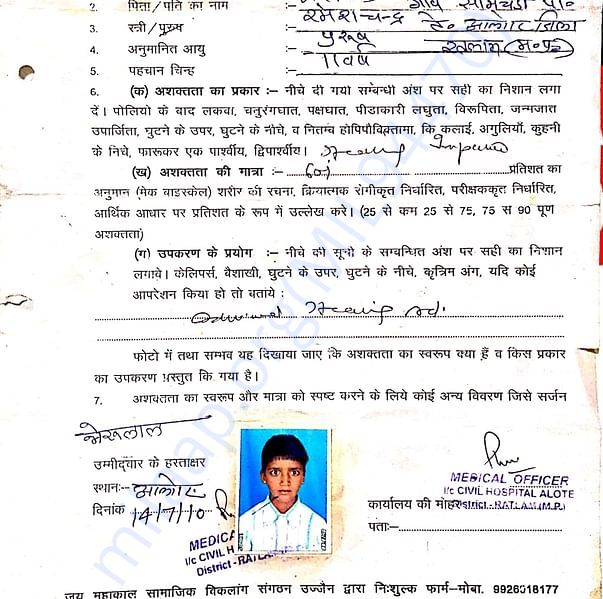 2. पिता/पति का नाम गांव
रमेशचन्द्र ते० आलोट जिला
3. स्त्री/पुरूष पुरूष रतलाम (म.प्र.)
4. अनुमानित आयु 11 वर्ष
5. पहचान चिन्ह
6. (क) अशक्तता का प्रकार :– नीचे दी गयी सम्बन्धी अंश पर सही का निशान लगा
दें। पोलियो के बाद लकवा, चतुरंगघात, पक्षघात, पीडाकारी लघुता, विरूपिता, जन्मजात
उपार्जिता, घुटने के उपर, घुटने के नीचे, व नितम्ब होपिपौविक्तामा, कि कलाई, अगुलियाँ, कुहनी
के निचे, फारूकर एक पार्श्वीय, द्विपार्श्वीय। Hearing
(ख) अशक्तता की मात्रा :– 60% प्रतिशत का
अनुमान (मेक वाडस्केल) शरीर की रचना, क्रियात्मक रांगीकृत निर्धारित, परीक्षककृत निर्धारित,
आर्थिक आधार पर प्रतिशत के रूप में उल्लेख करे। (25 से कम 25 से 75, 75 स 90 पूण
अशक्तता)
(ग) उपकरण के प्रयोग :– नीचे की सूची के सम्बन्धित अंश पर सही का निशान
लगावे। केलिपर्स, वैशाखी, घुटने के उपर, घुटने के नीचे, कृत्रिम अंग, यदि कोई
आपरेशन किया हो तो बताये :
Hearing
फोटो में तथा सम्भव यह दिखाया जाए कि अशक्तता का स्वरूप क्या हैं व किस प्रकार
का उपकरण प्रस्तुत कि गया है।
7. अशक्तता का स्वरूप और मात्रा को स्पष्ट करने के लिये कोई अन्य विवरण जिसे सर्जन
उम्मीदवार के हस्ताक्षर
स्थान:– आलोट
दिनांक 14/7/10
MEDICAL OFFICER
I/c CIVIL HOSPITAL ALOTE
कार्यालय की मोहर District - RATLAM (M.P.)
पता:–
MEDICA
I/c CIVIL H
District - RATLA
जय महाकाल सामाजिक विकलांग संगठन उज्जैन द्वारा निःशुल्क फार्म–मोबा. 9926018177